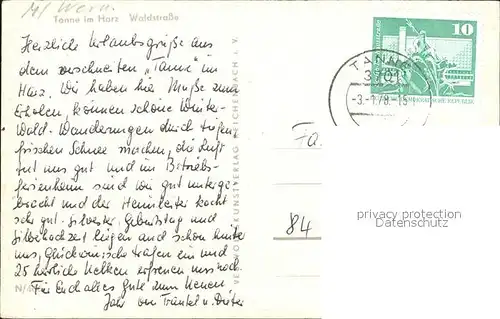 Tanne im Harz Waldstraße
Herzliche Urlaubsgrüße aus
dem verschneiten "Tanne" im
Harz. Wir haben hier Muße zum
Erholen, können schöne Winter-
Wald-Wanderungen durch tiefen
frischen Schnee machen, die Luft
tut uns gut und im Betriebs-
ferienheim sind wir gut unterge-
bracht und der Heimleiter kocht
sehr gut. Silvester, Geburtstag und
Silberhochzeit liegen auch schon hinter
uns, Glückwünsche trafen ein und
25 herrliche Nelken erfreuen uns noch
Für Euch alles Gute zum Neuen
Jahr von
VEB VOLKSKUNSTVERLAG REICHENBACH i. V.
10
TANNE
3701
-3.-1.78.-15
DEUTSCHE DEMOKRATISCHE REPUBLIK
Fa
84
privacy protection
Datenschutz